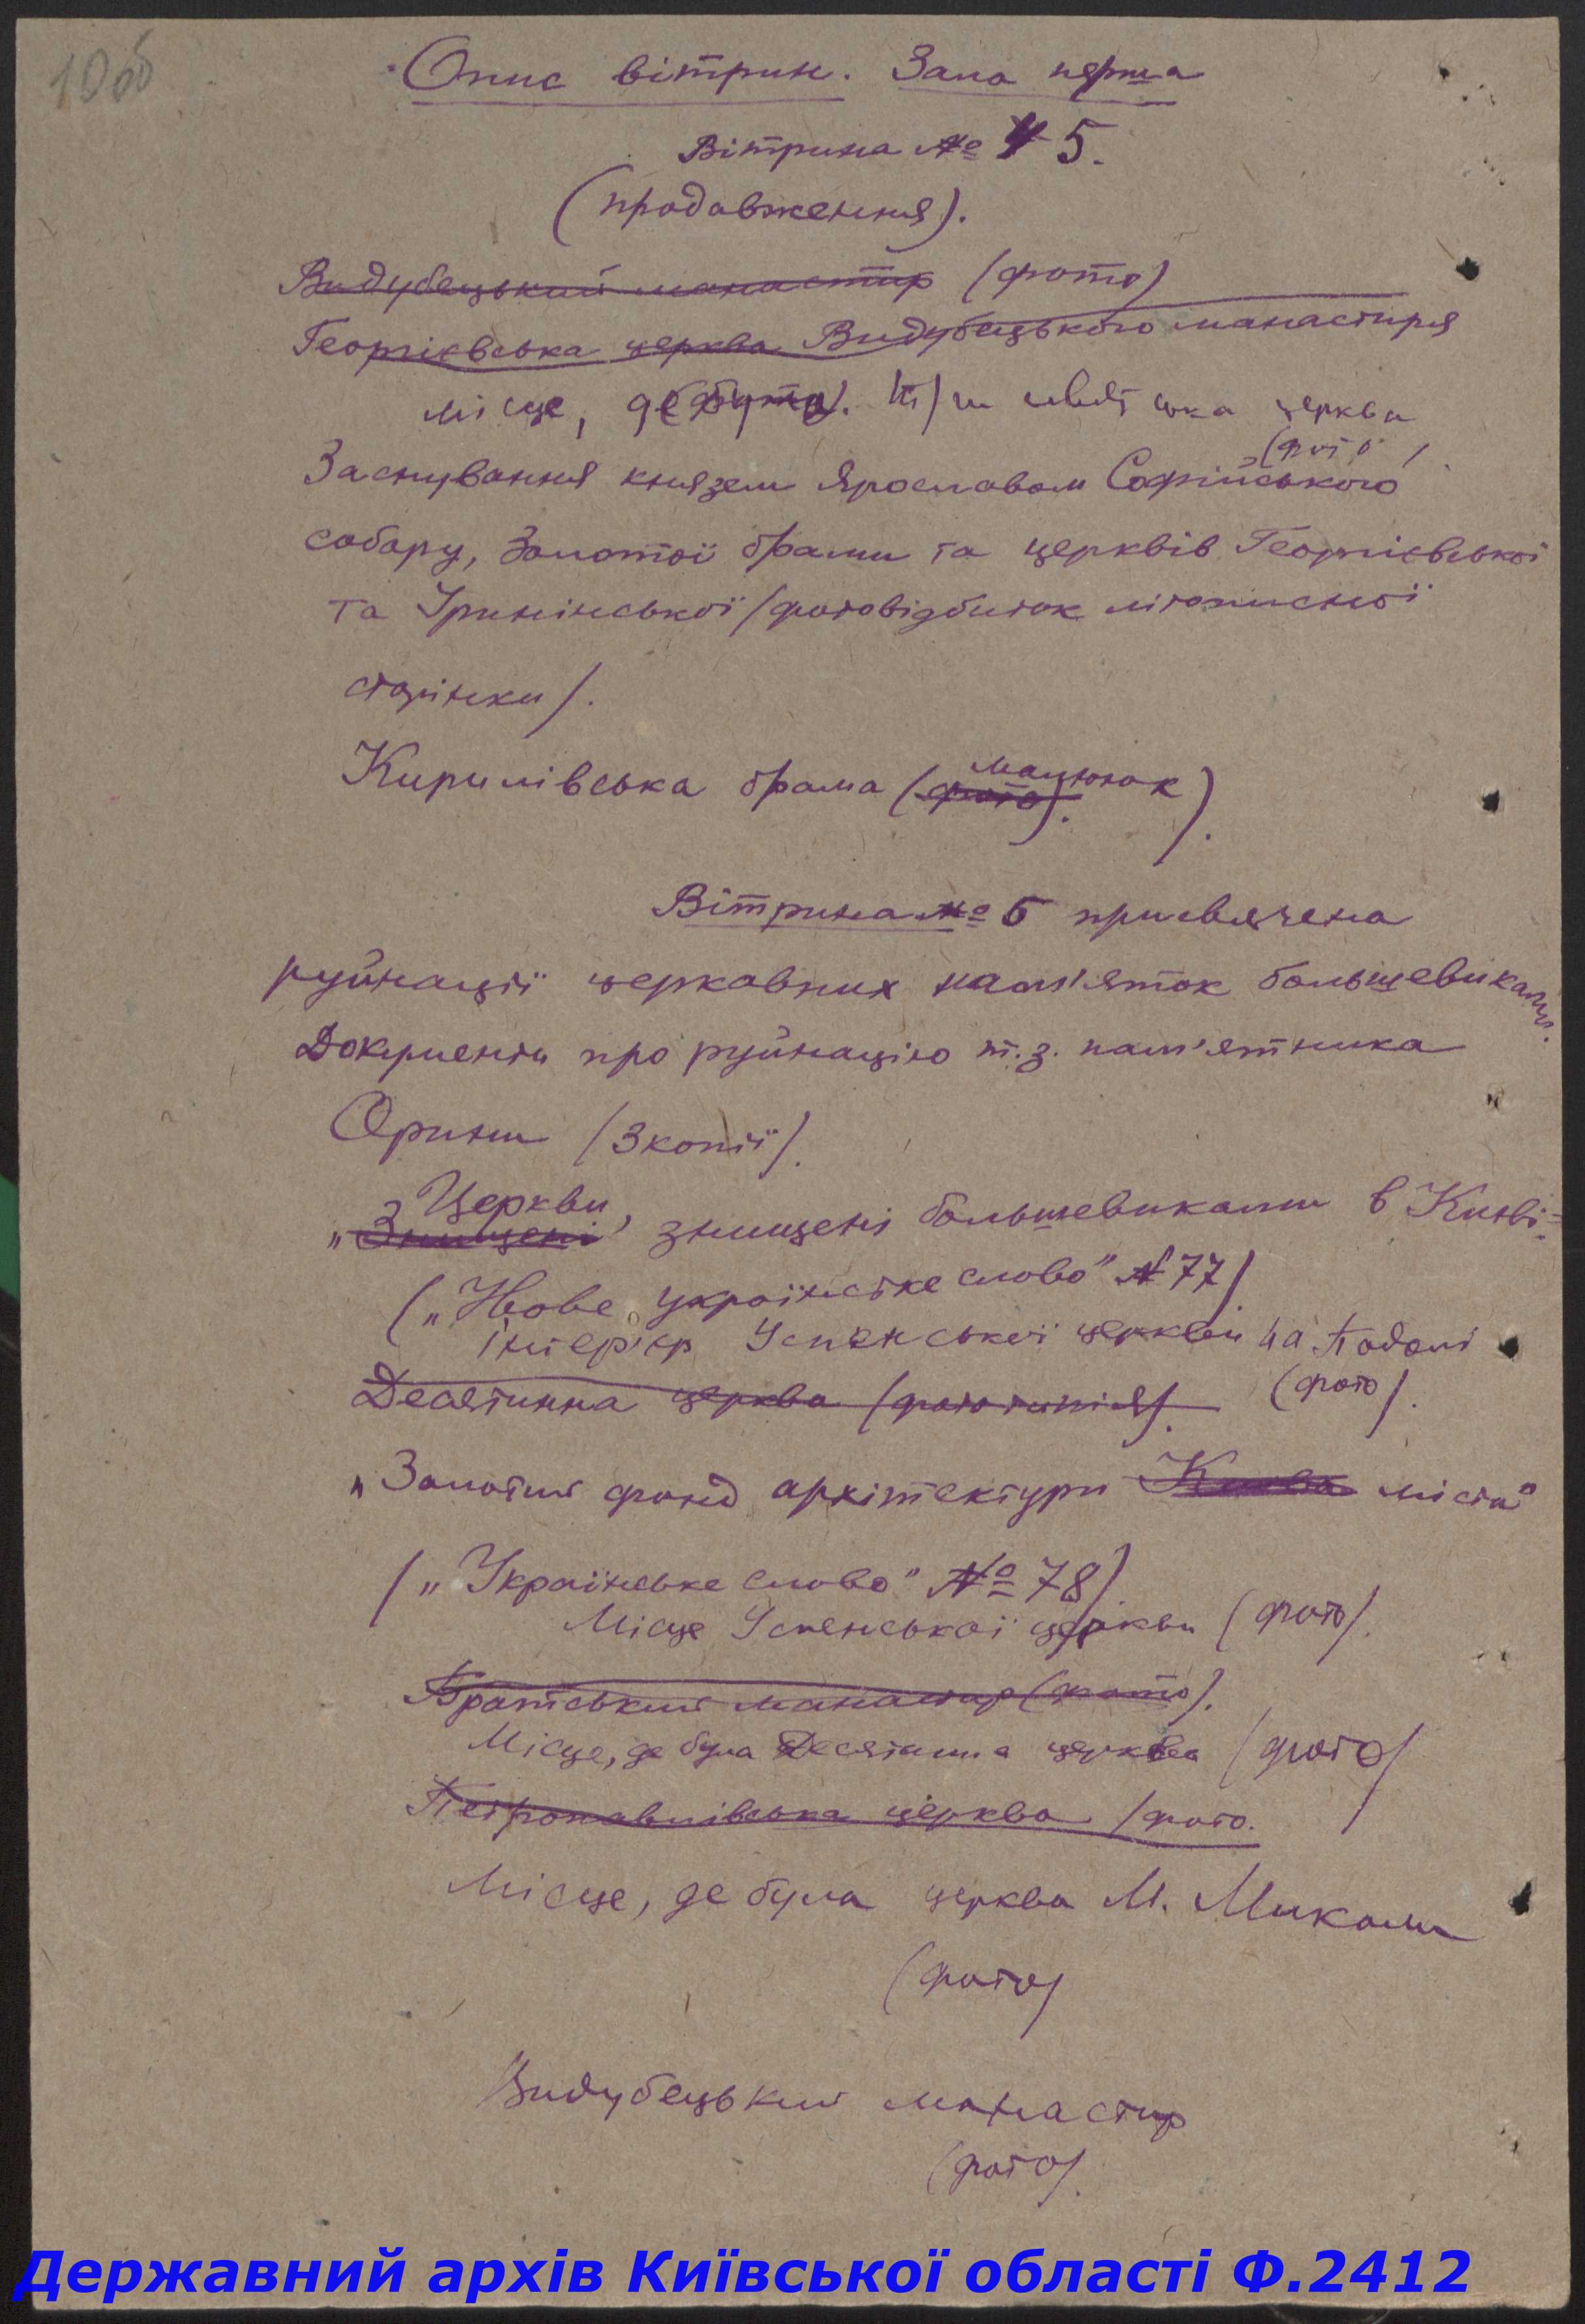 10об
Опис вітрин. Зала перша
Вітрина № 4 5.
(продовження).
Видубецький манастир (фото)
Георгієвська церква Видубецького манастиря
місце, де
церкви
(фото)
Заснування князем Ярославом Софійського
собору, Золотої брами та церквів Георгієвської
та Іринінської (фотовідбиток літописної
сторінки).
Кирилівська брама (фото). малюнок).
Вітрина № 6 присвячена
руйнації церковних пам'яток большевиками.
Документи про руйнацію т.з. пам'ятника
Орини (3 копії).
Церкви,
„Знищені знищені большевиками в Києві"
(„Нове українське слово" № 77).
Інтер'єр Успенської церкви на Подолі
(фото).
Десятинна церква (фототипія).
„Золотий фонд архітектури Києва міста"
(„Українське слово" № 78).
Місце Успенської церкви (фото).
Братський манастир (фото).
Місце, де була Десятинна церква (фото)
Петропавлівська церква (фото.
Місце, де була церква М. Миколи
(фото)
Видубецький манастир
(фото).
Державний архів Київської області Ф.2412